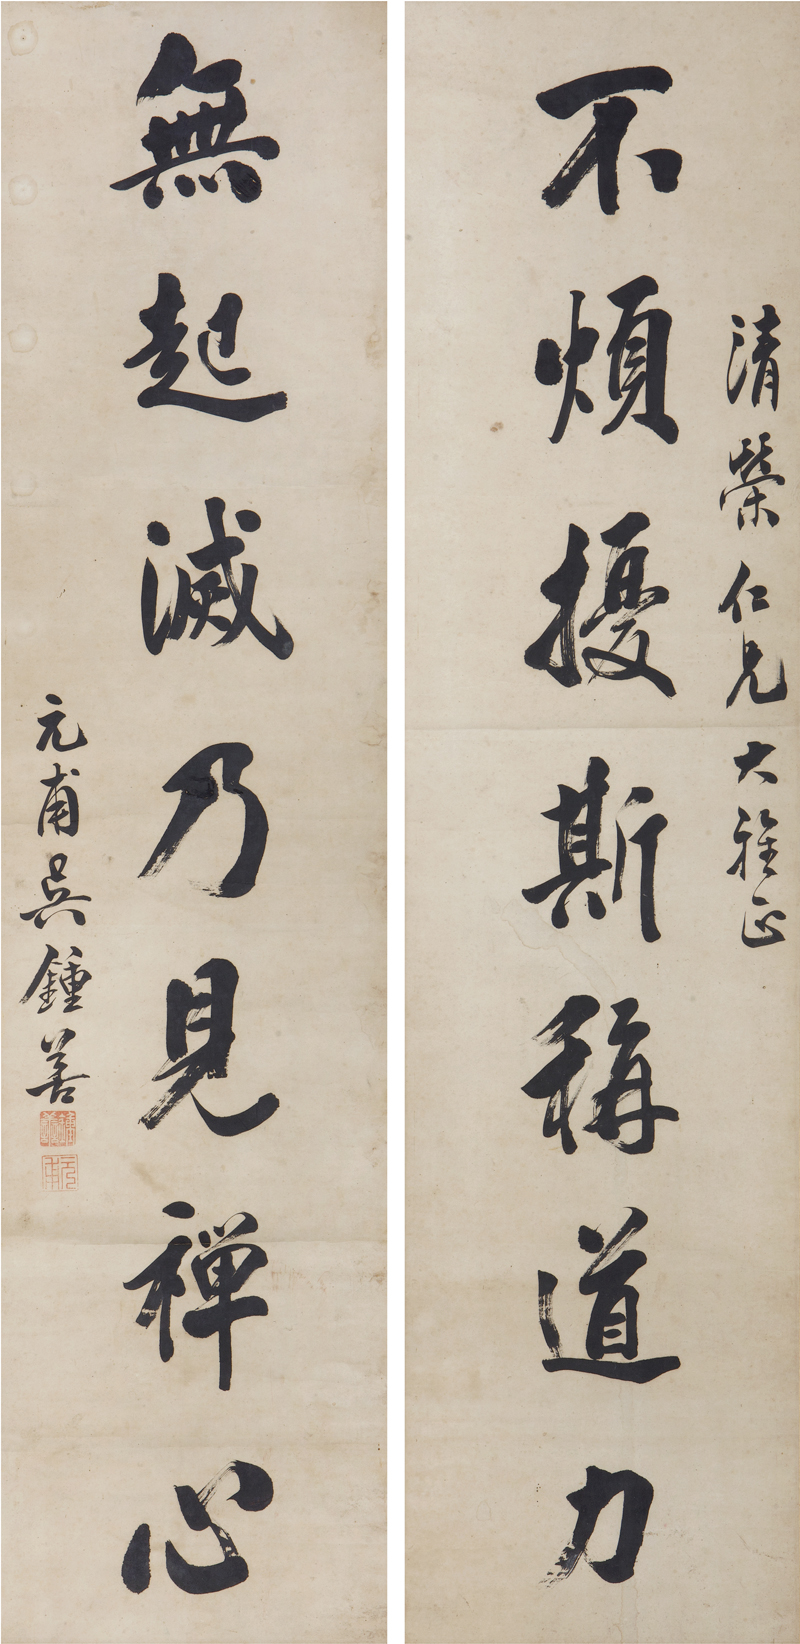 清榮仁兄大雅正
不煩擾斯稱道力
無起滅乃見禪心
元甫吳鍾善
元甫